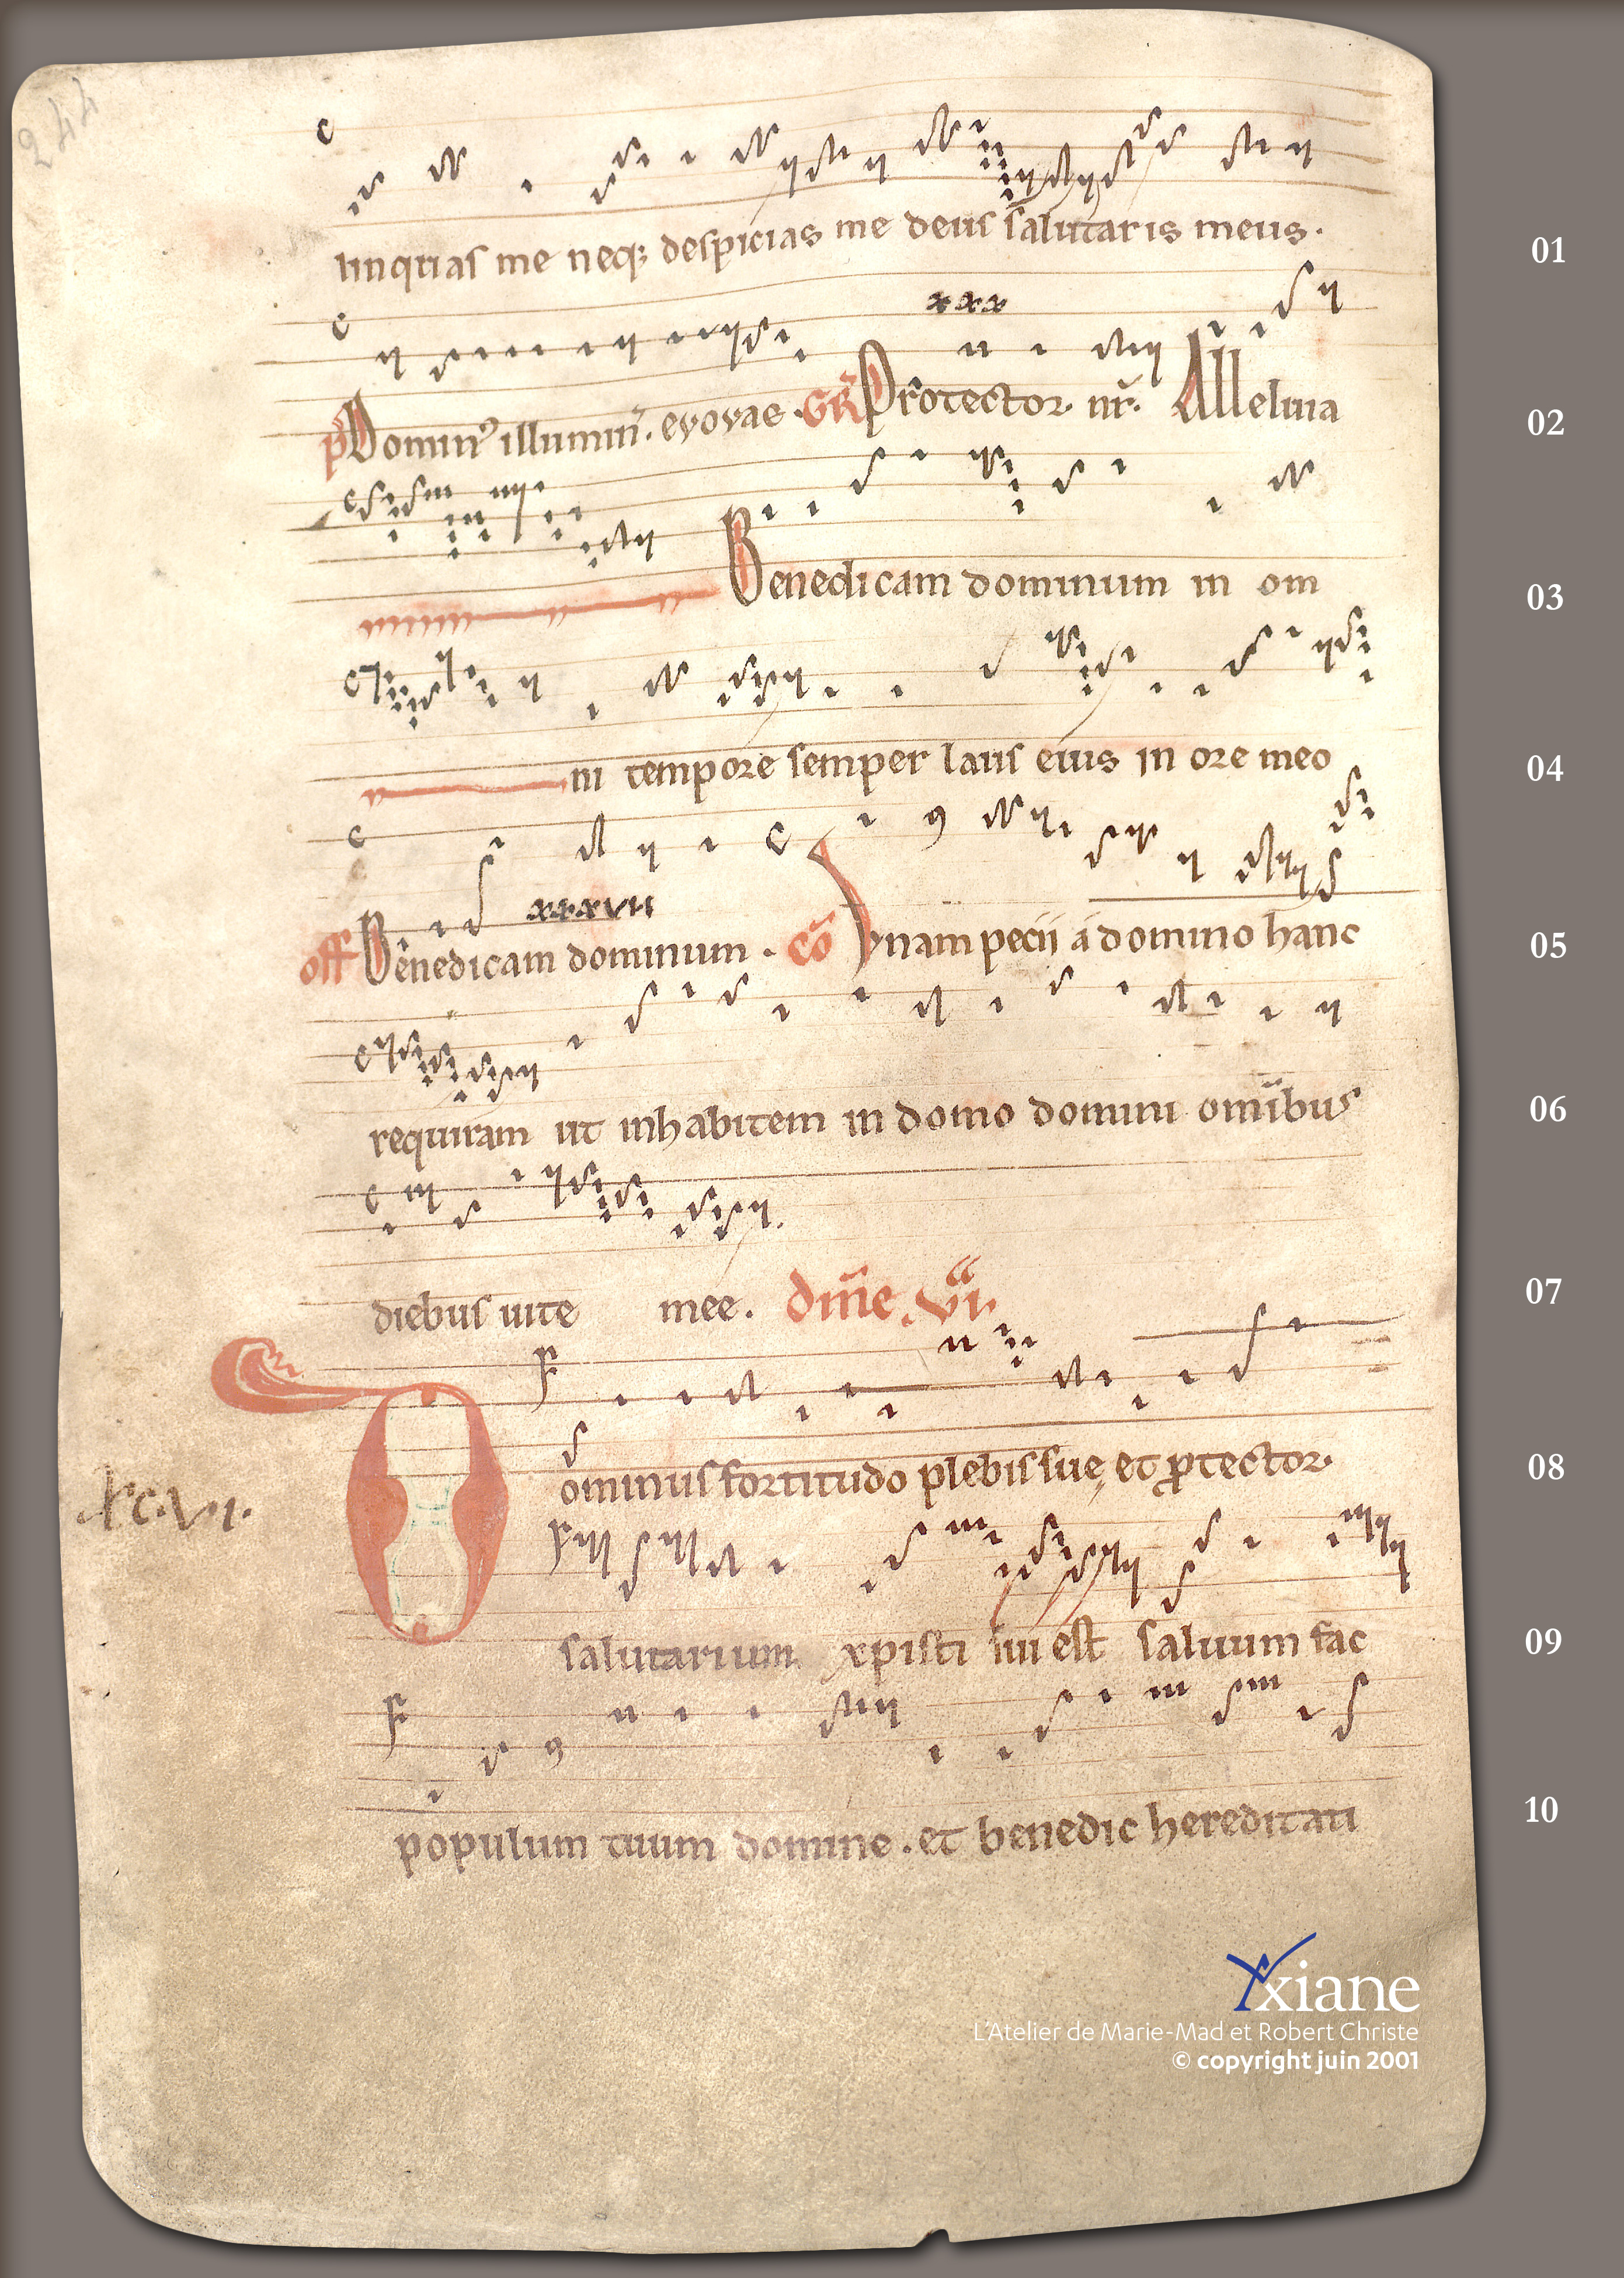 244
linquas me neq; despicias me deus salutaris meus.
01
xxx
ps Domin⁹ illumin̄. evovae. GR̄ Protector. nr̄. Alleluia
02
Benedicam dominum in om
03
ni tempore semper laus eius in ore meo
04
xxxvii
off Benedicam dominum. cō Vnam pecii a domino hanc
05
requiram ut inhabitem in domo domini omībus
06
diebus uite mee. dm̄e. vi.
07
Dominus fortitudo plebis sue, et ꝓtector.
08
xc.vi.
salutarium xpisti sui est saluum fac
09
populum tuum domine. et benedic hereditati
10
xiane
L'Atelier de Marie-Mad et Robert Christe
© copyright juin 2001